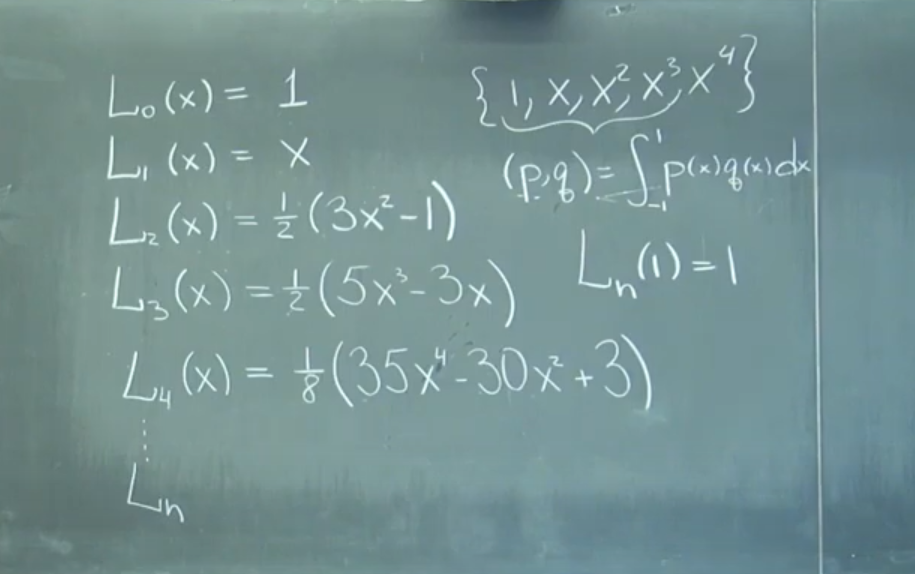 L₀(x) = 1
L₁(x) = x
L₂(x) = ½(3x² - 1)
L₃(x) = ½(5x³ - 3x)
L₄(x) = ⅛(35x⁴ - 30x² + 3)
⋮
Lₙ
{1, x, x², x³, x⁴}
(p,q) = ∫₋₁¹ p(x)q(x)dx
Lₙ(1) = 1